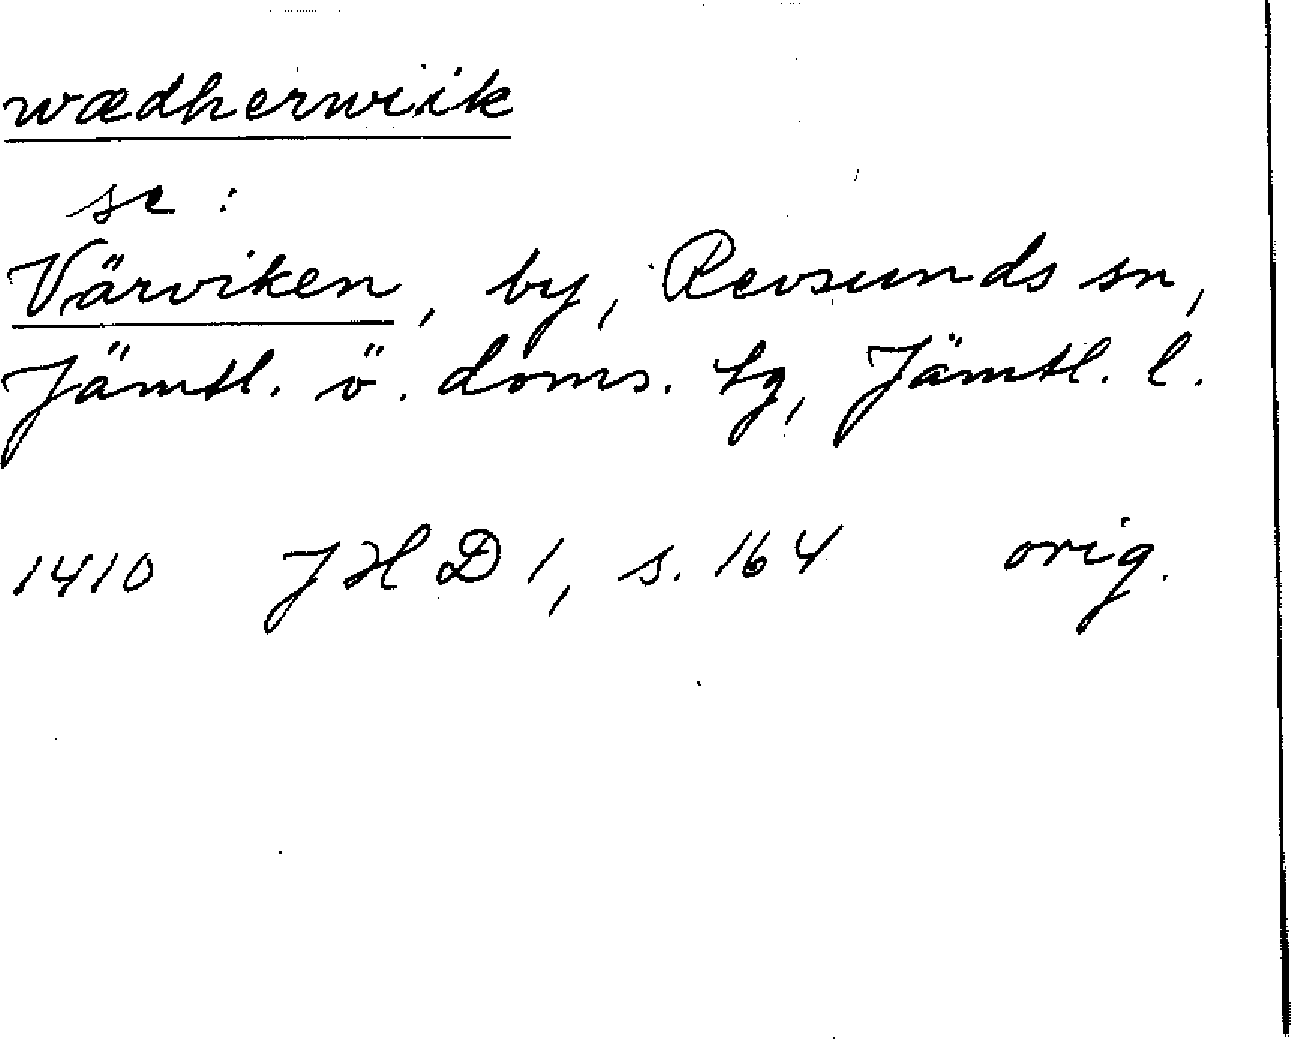 wædherwiik
se:
Värviken, by, Revsunds sn,
Jämtl. ö. doms. tg, Jämtl. l.
1410 JHD 1, s. 164 orig.